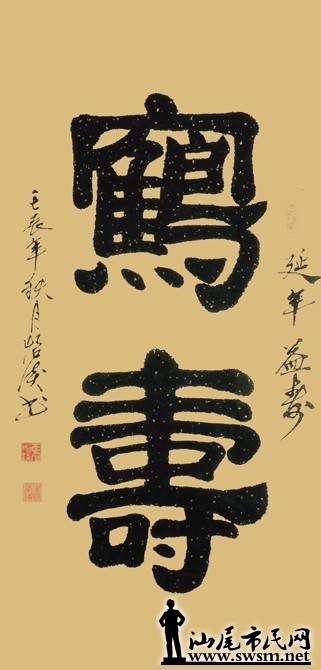 延年益寿
鶴
壽
壬辰年秋月书
汕尾市民网
www.swsm.net